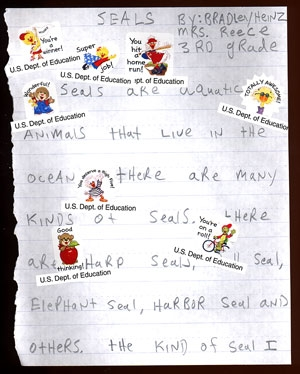 SEALS BY: BRADLEY HEINZ
MRS. Reece
3RD grade
You're a winner!
U.S. Dept. of Education
Super job!
U.S. Dept. of Education
You hit a home run!
pt. of Education
Wonderful!
U.S. Dept. of Education
TOTALLY AWESOME!
U.S. Dept. of Education
Seals are aquatic
ANIMALS that LIVE IN the
OCEAN there ARE MANY
You deserve a
U.S. Dept. of Education
KINDS Of Seals. there
Good thinking!
U.S. Dept. of Education
You're on a roll!
U.S. Dept. of Education
are HARP Seals, seal,
Elephant Seal, HARBOR Seal AND
Others. the KIND of Seal I